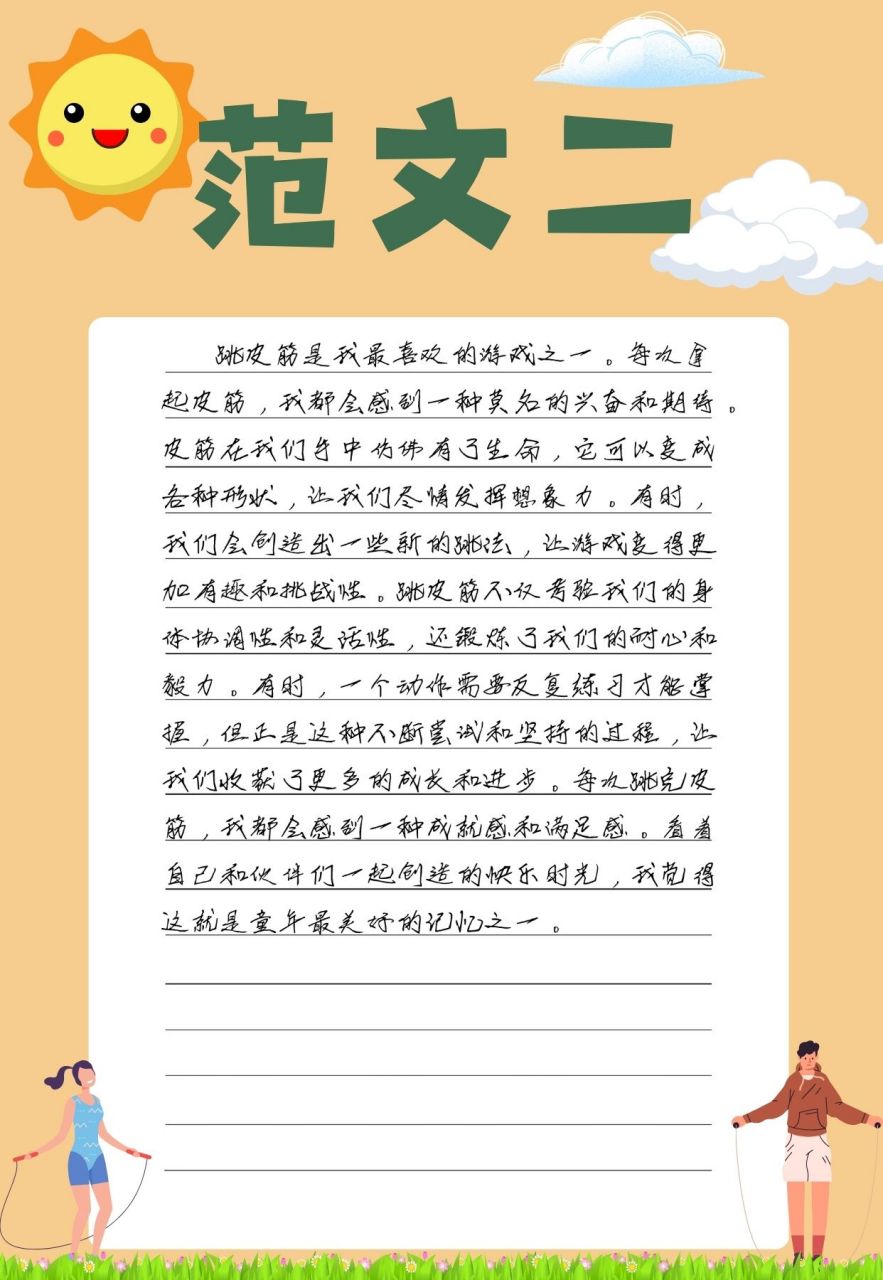 范文二
跳皮筋是我最喜欢的游戏之一。每次拿
起皮筋，我都会感到一种莫名的兴奋和期待。
皮筋在我们手中仿佛有了生命，它可以变成
各种形状，让我们尽情发挥想象力。有时，
我们会创造出一些新的跳法，让游戏变得更
加有趣和挑战性。跳皮筋不仅考验我们的身
体协调性和灵活性，还锻炼了我们的耐心和
毅力。有时，一个动作需要反复练习才能掌
握，但正是这种不断尝试和坚持的过程，让
我们收获了更多的成长和进步。每次跳完皮
筋，我都会感到一种成就感和满足感。看着
自己和伙伴们一起创造的快乐时光，我觉得
这就是童年最美好的记忆之一。